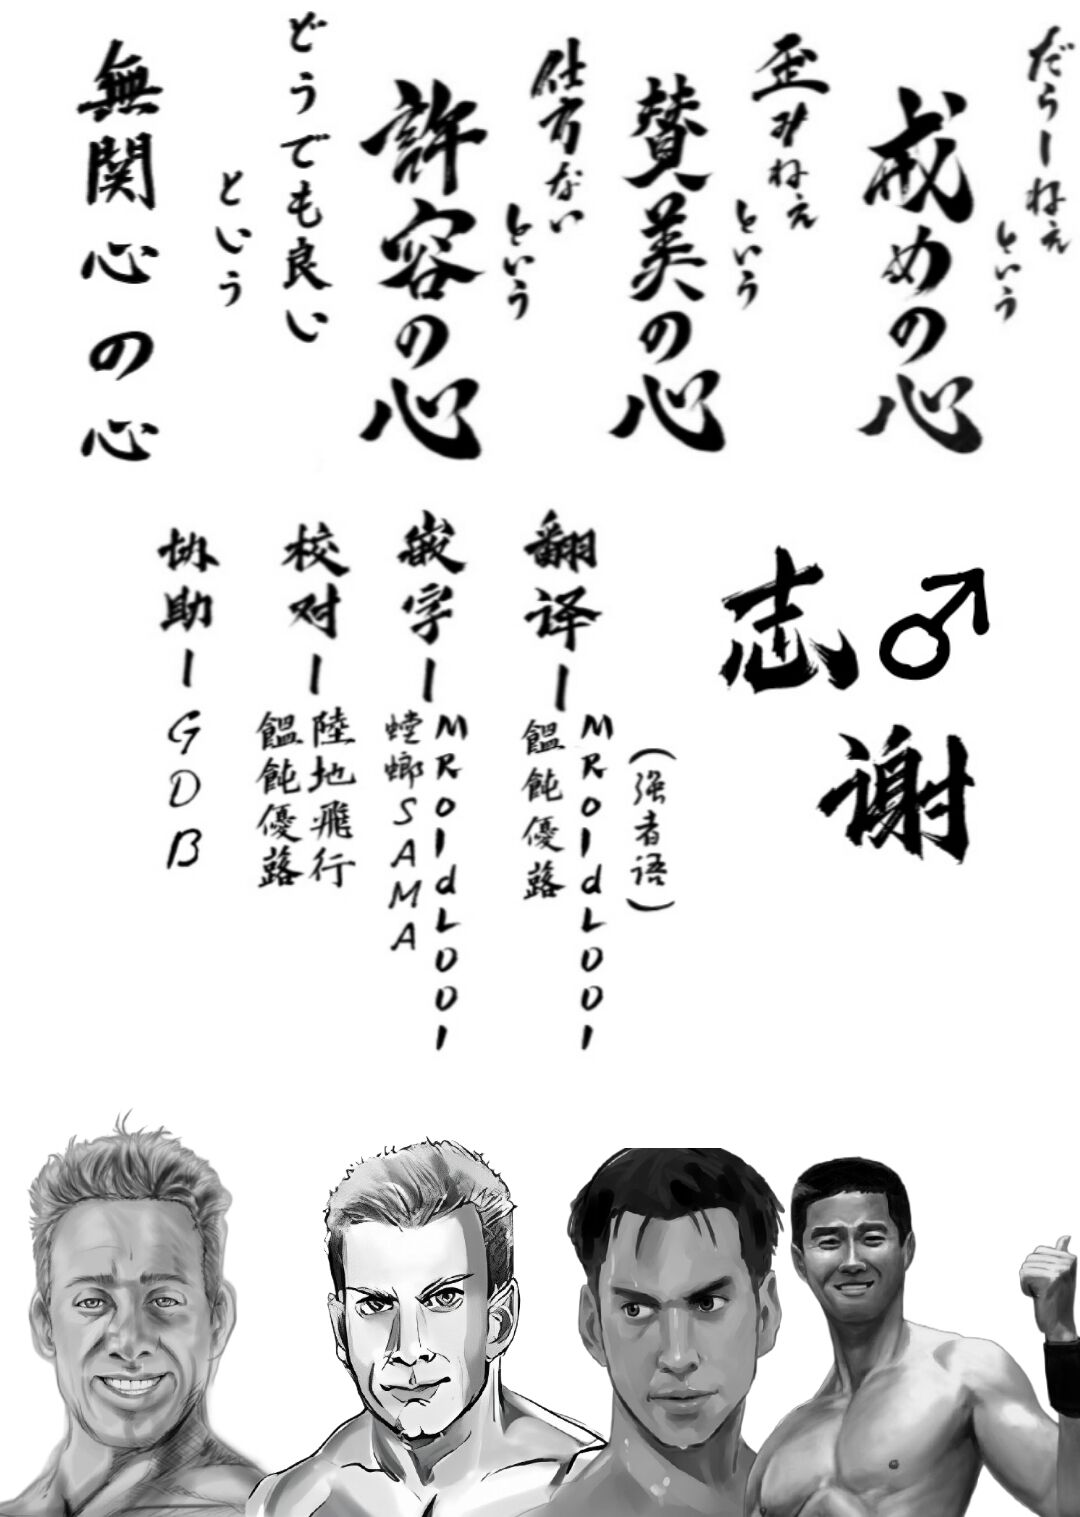 だらしねえ
という
戒めの心
歪みねえ
という
賛美の心
仕方ない
という
許容の心
どうでも良い
という
無関心の心
志♂
谢
翻译ー
(强者语)
MR01dL001
餛飩優蕗
嵌字ー
MR01dL001
螳螂SAMA
校对ー
陸地飛行
餛飩優蕗
协助ー
GDB